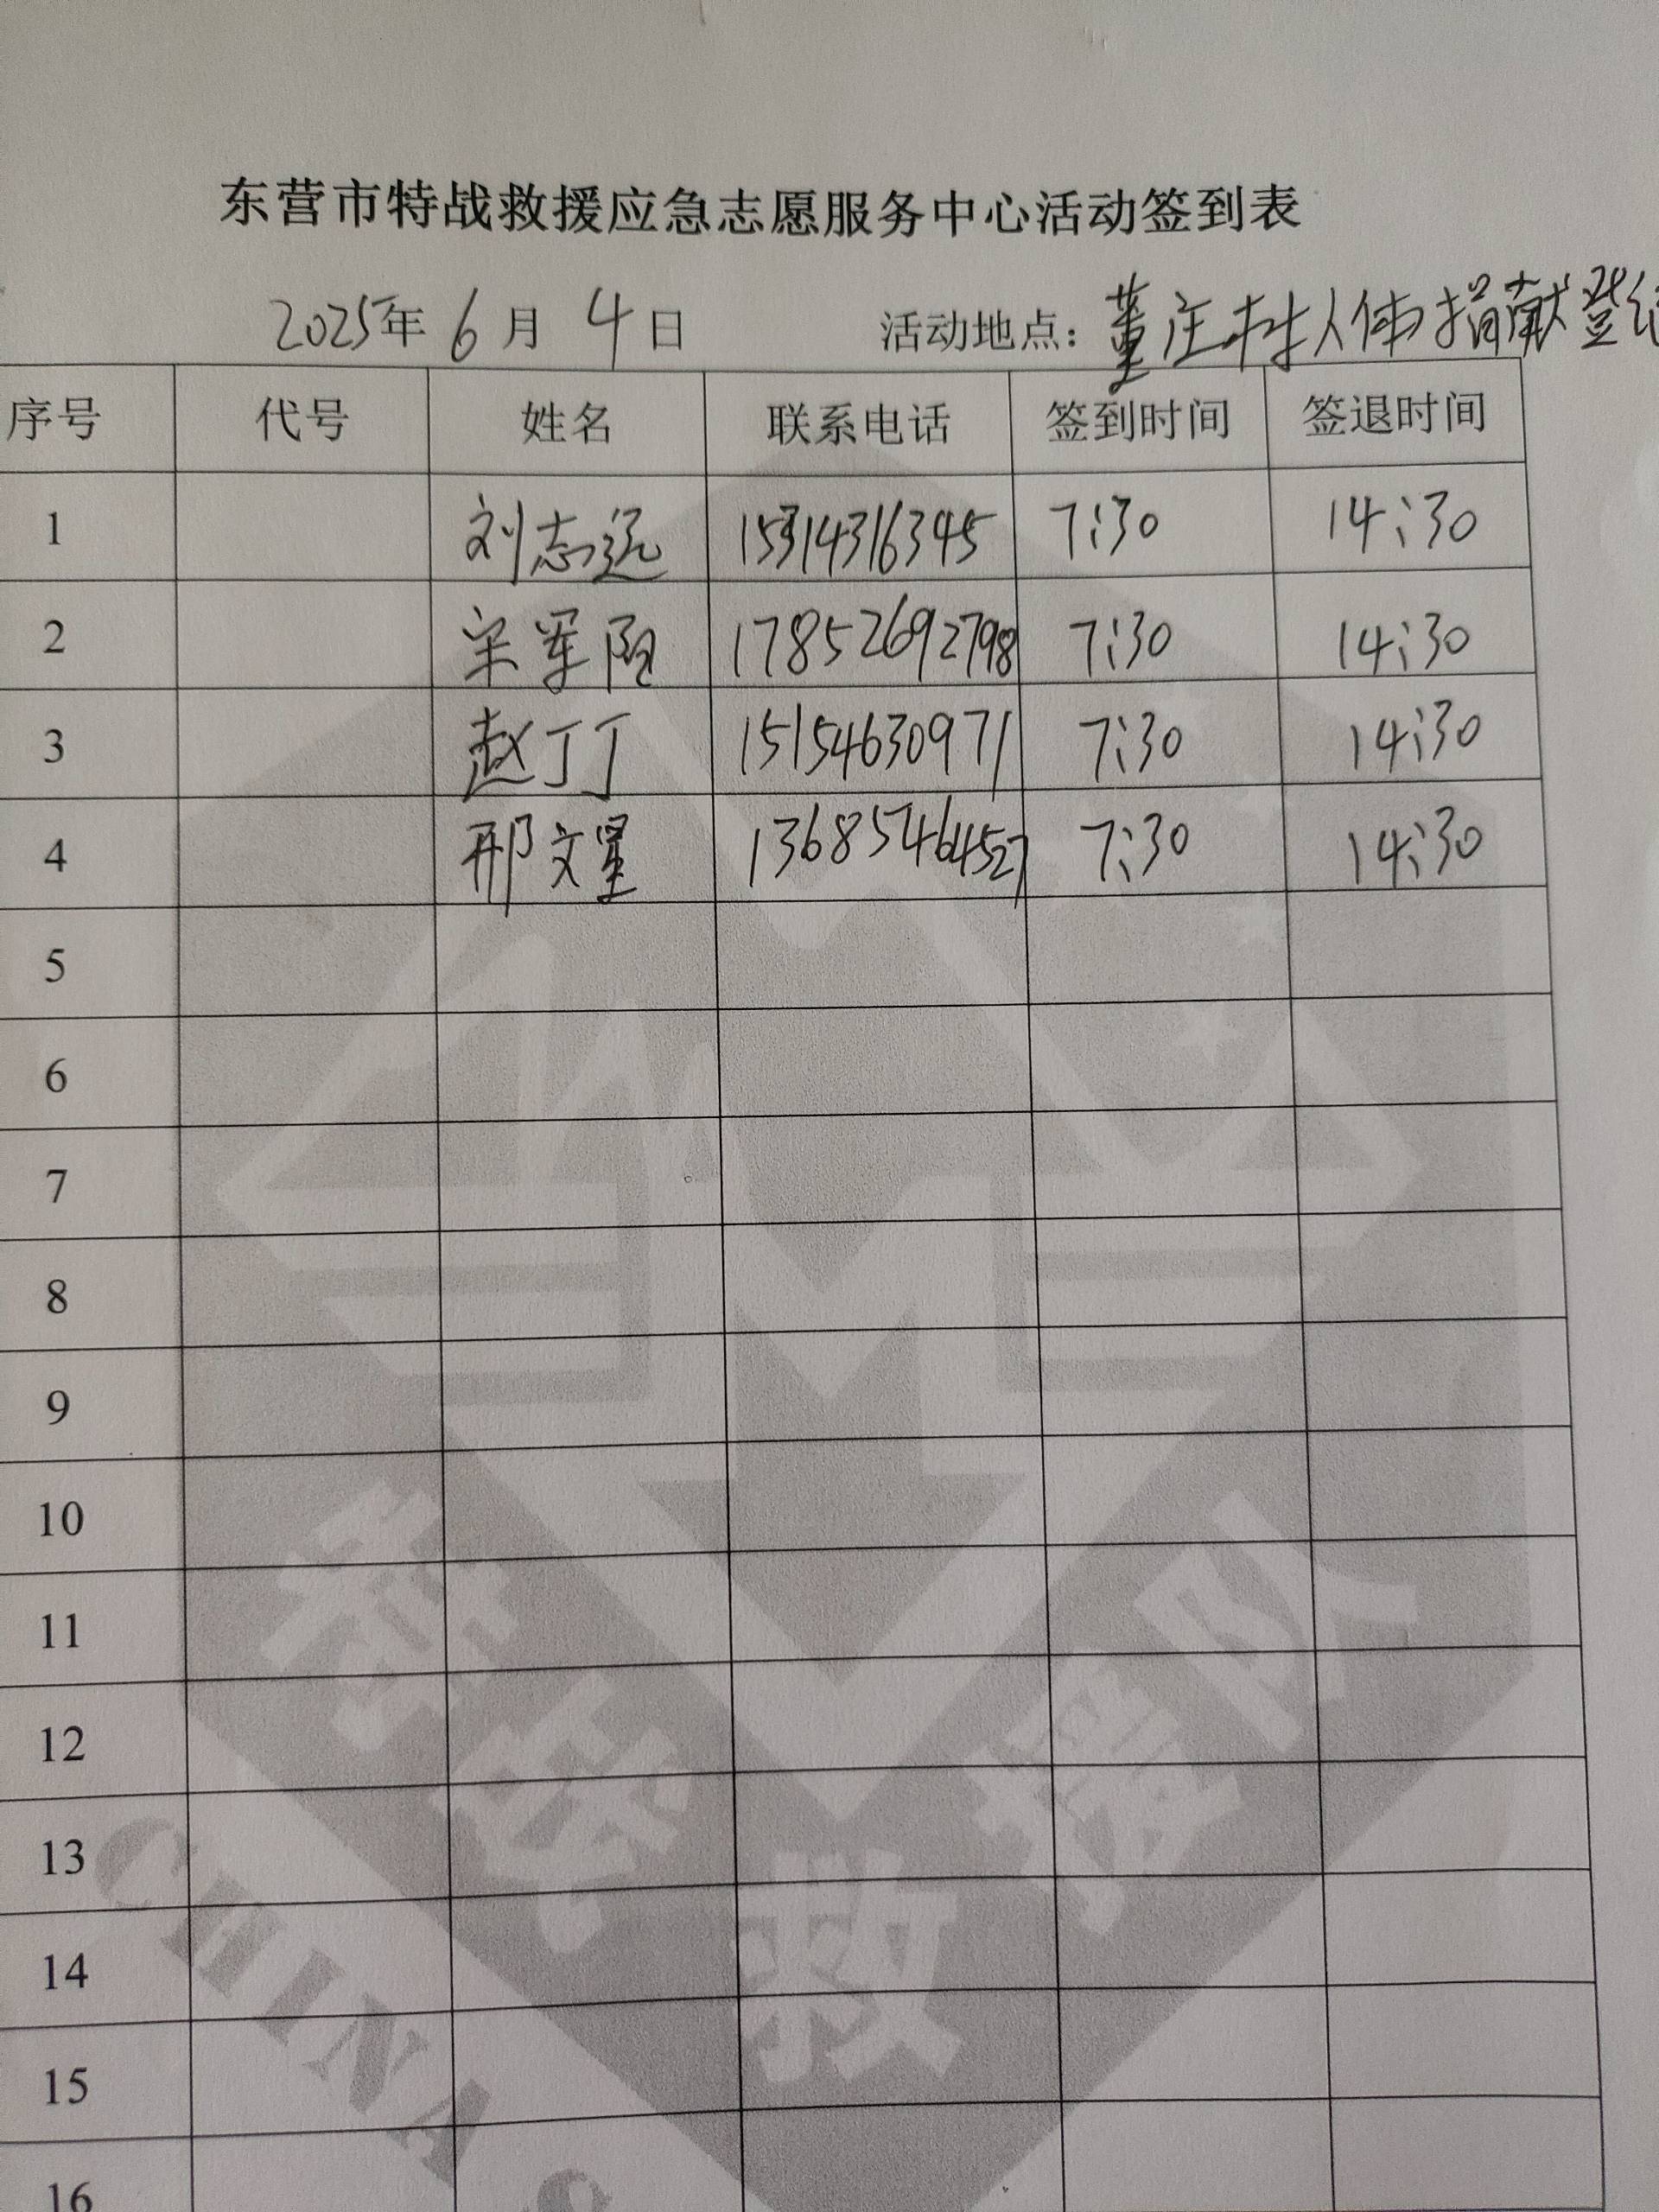 东营市特战救援应急志愿服务中心活动签到表
2025年 6 月 4 日 活动地点：董庄村人体捐献登记
序号 代号 姓名 联系电话 签到时间 签退时间
1 刘志远 15314316345 7:30 14:30
2 宋军阳 17852692798 7:30 14:30
3 赵丁丁 15154630971 7:30 14:30
4 邢文星 13685464527 7:30 14:30
5
6
7
8
9
10
11
12
13
14
15
16
特战救援队
CHINA S